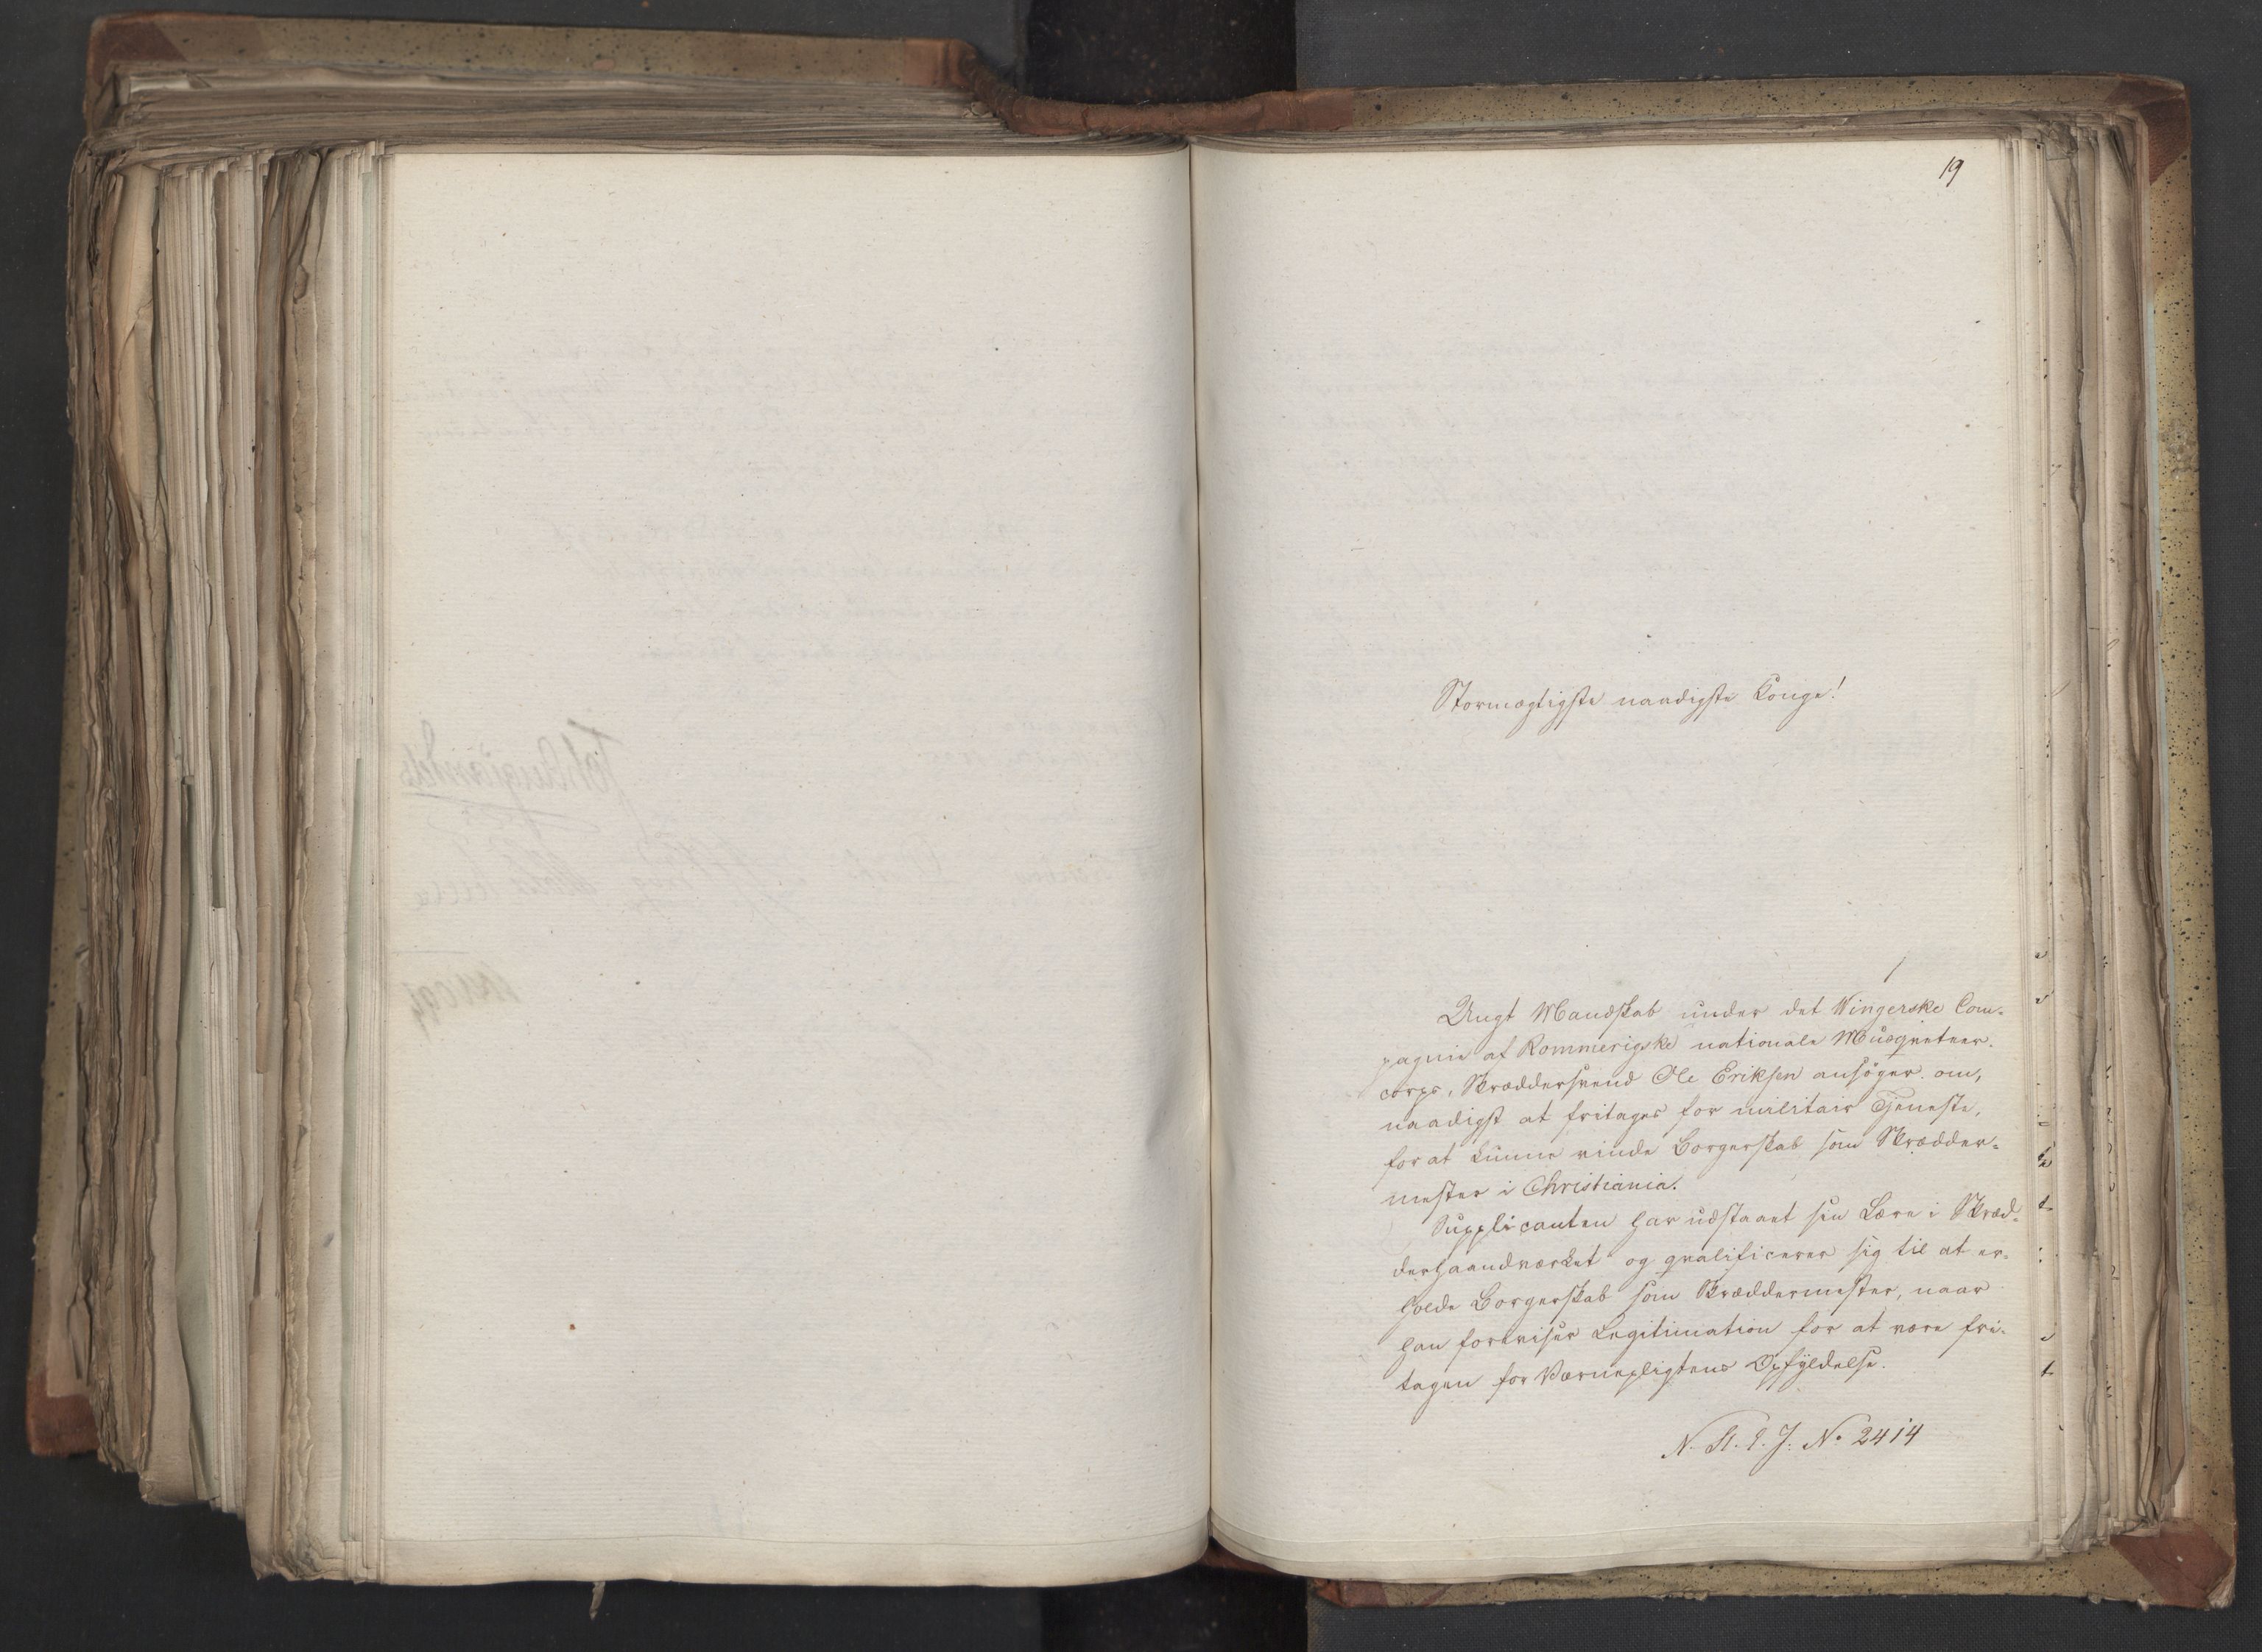 19
Stormægtigste naadigste Konge!
1
Ungt Mandskab under det Wingerske Com-
pagnie af Rommerigske nationale Musqueteer-
corps, Skræddersvend Ole Eriksen ansøger om,
naadigst at fritages for militair Tjeneste,
for at kunne vinde Borgerskab som Skrædder-
mester i Christiania.
Supplicanten har udstaaet sin Lære i Skræd-
derhaandværket og qvalificerer sig til at er-
holde Borgerskab som Skræddermester, naar
han foreviser Legitimation for at være fri-
tagen for Værnepligtens Opfyldelse.
N. St. E. J. No 2414